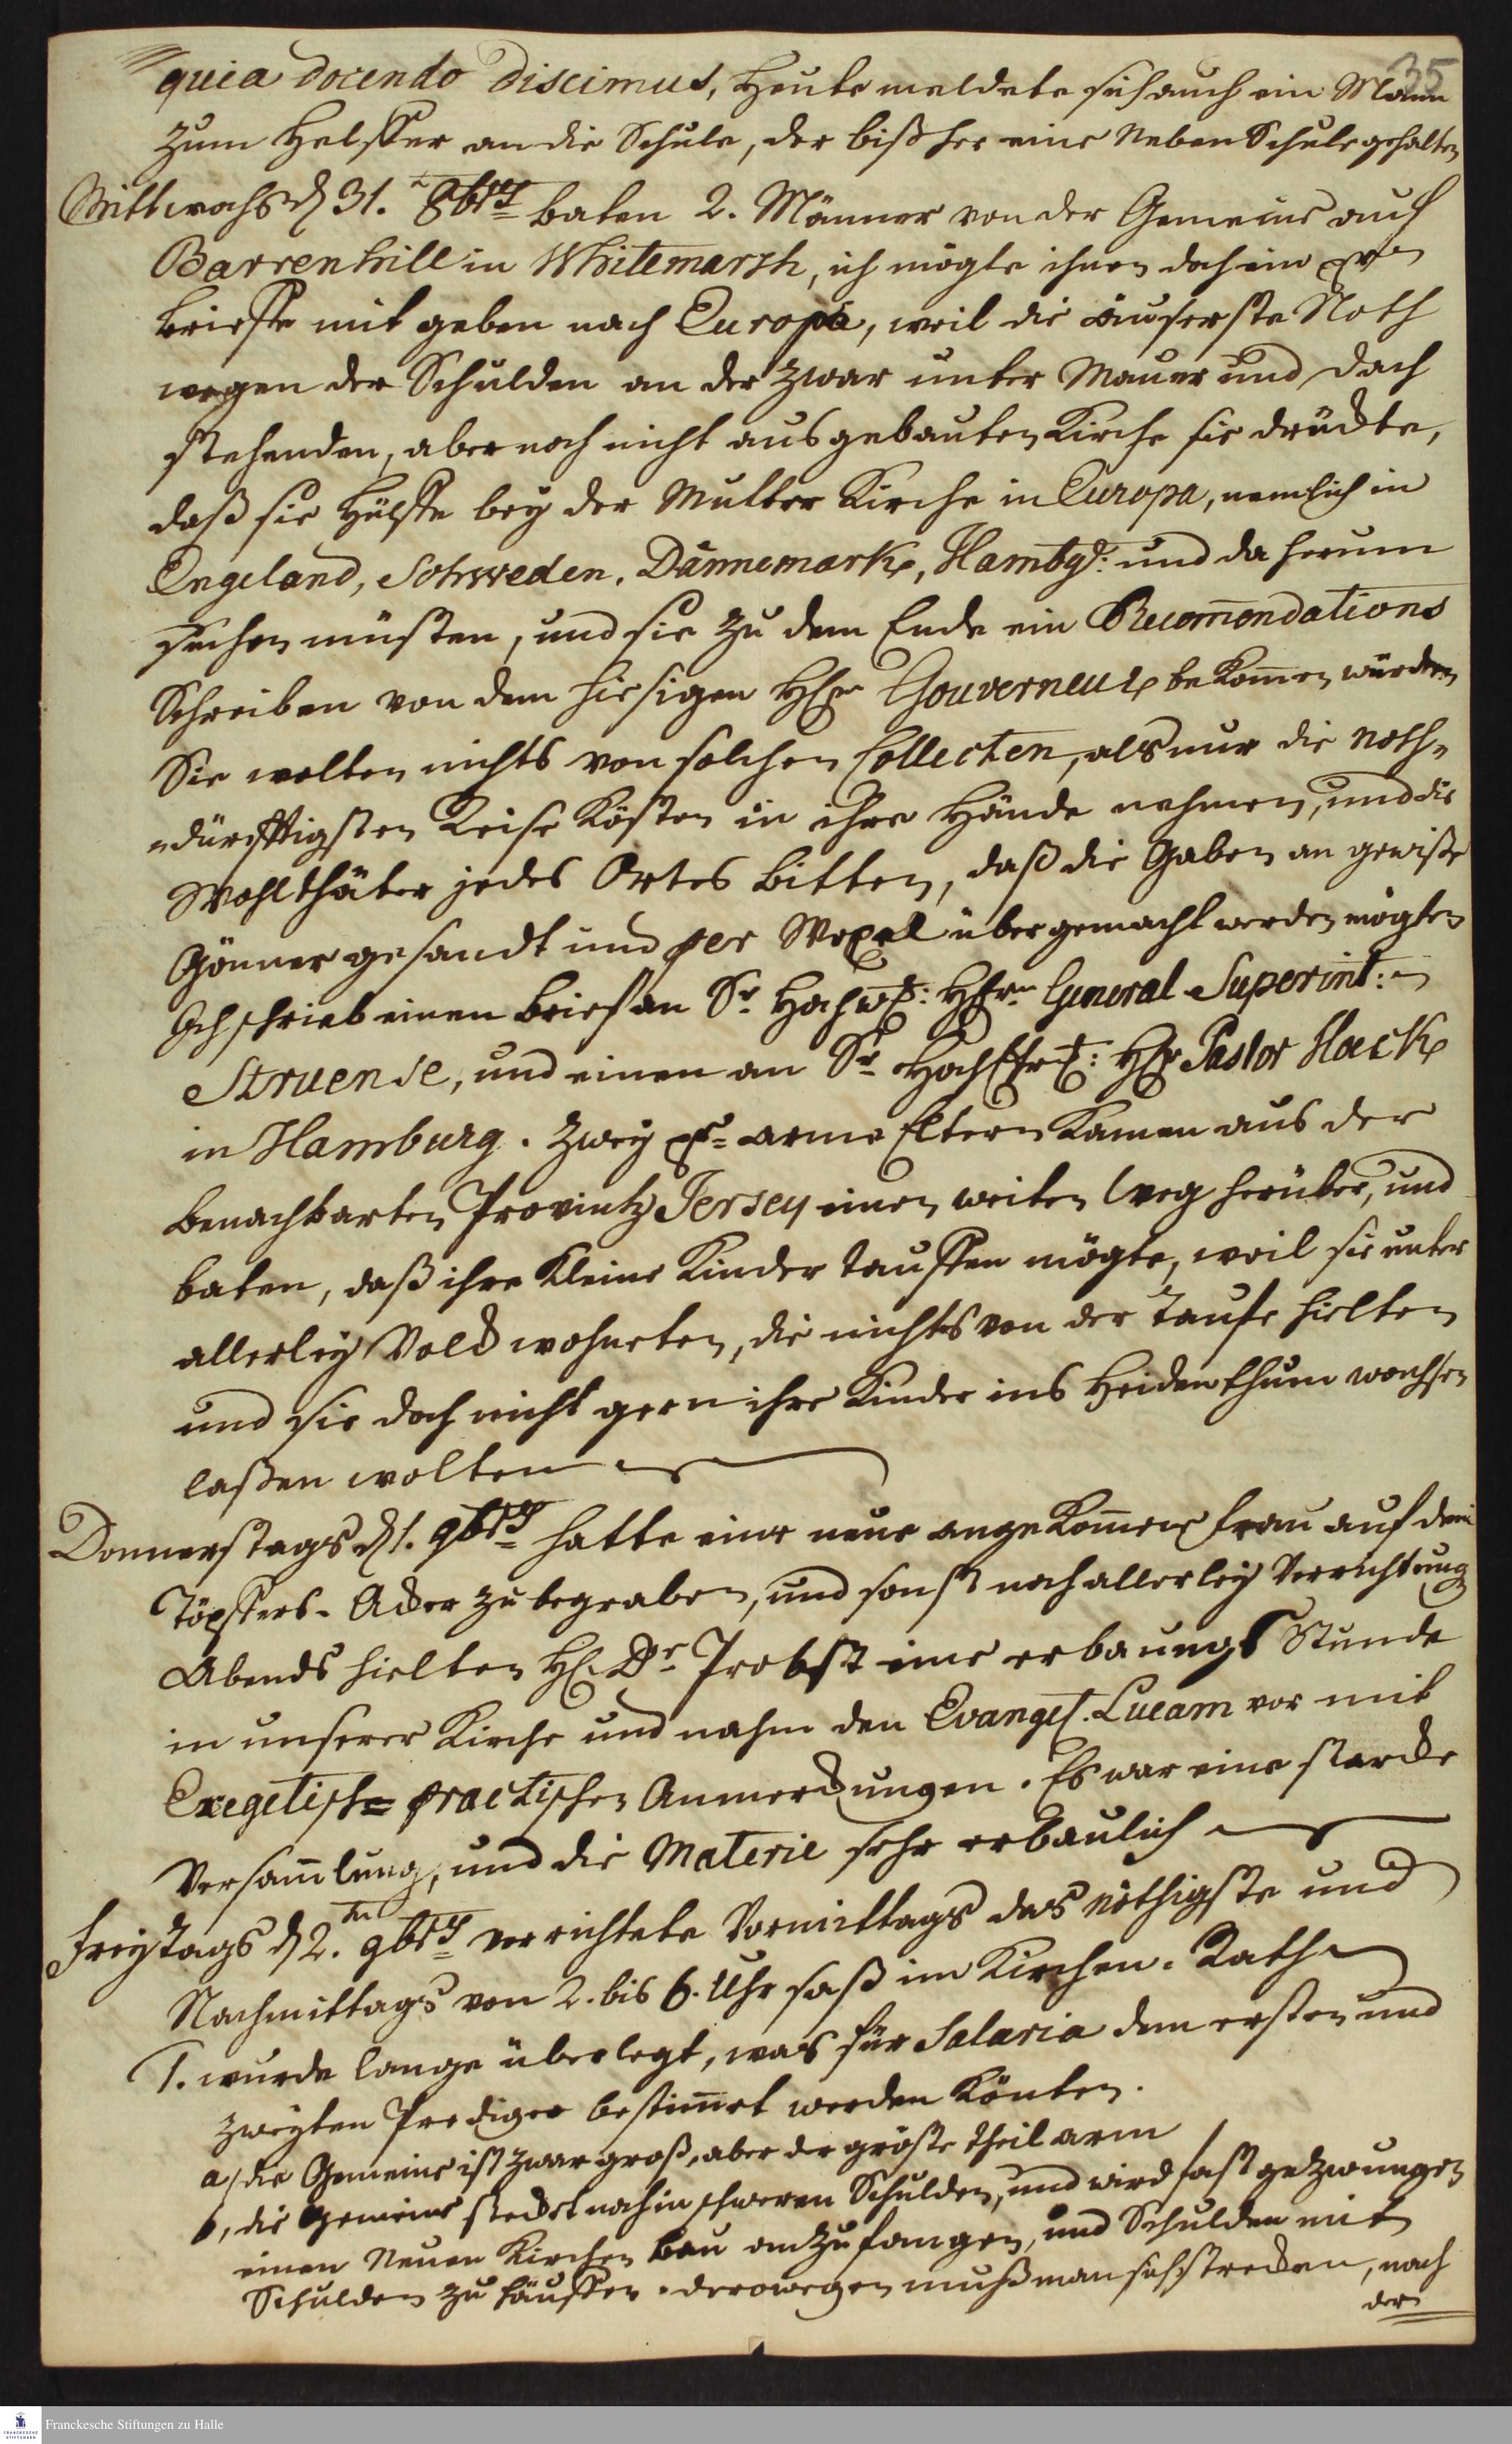 35
quia docendo discimus, Heute meldete sich auch ein Mann
zum Helffer an die Schule, der bißher eine Neben Schule gehalten
Mittwochs d 31. 8brs baten 2. Männer von der Gemeine auf
Barrenhill in Whitemarsh, ich mögte ihnen doch ein pr
brieffe mit geben nach Europa, weil die äuserste Noth
wegen der Schulden an der zwar unter Mauer und Dach
stehenden, aber noch nicht ausgebauten Kirche sie drückte,
daß sie Hülffe bey der Mutter Kirche in Europa, nemlich in
Engeland, Schweden, Dännemark, Hambg: und da herum
suchen müsten, und sie zu dem Ende ein Recom̄endations
Schreiben von dem hiesigen HErrn Gouverneur bekom̄en würden
Sie wolten nichts von solchen Collecten, als nur die noth-
-dürfftigsten Reise Kösten in ihre Hände nehmen, und die
Wohlthäter jedes Ortes bitten, daß die Gaben an gewiße
Gönner gesandt und per Wexel übergemacht werden mögten
Ich schrieb einen brief an Sr Hochw: HErrn General-Superint:
Struense, und einen an Sr HochEhrw: HErr Pastor Hack
in Hamburg. Zwey p arme Eltern kamen aus der
benachbarten Provintz Jersey einen weiten Weg herüber, und
baten, daß ihre kleine Kinder tauffen mögte, weil sie unter
allerley Volck wohneten, die nichts von der Taufe hielten
und sie doch nicht gern ihre Kinder ins Heidenthum wachsen
laßen wolten
Donnerstags d 1. 9brs hatte eine neue angekom̄ene frau auf dem
Töpffers-Acker zu begraben, und sonst noch allerley Verrichtung
Abends hielten H. Dr Probst eine erbauungs Stunde
in unserer Kirche und nahm den Evangel. Lucam vor mit
Exegetisch= practischen Anmerckungen. Es war eine starcke
Versam̄lung, und die Materie sehr erbaulich
Freytags d 2.ten 9brs verrichtete Vormittags das nöthigste und
Nachmittags von 2. bis 6. Uhr saß im Kirchen-Rath
1. wurde lange überlegt, was für Salaria dem ersten und
zweyten Prediger bestim̄et werden könten.
a, die Gemeine ist zwar groß, aber der gröste theil arm
b, die Gemeine stecket noch in schweren Schulden, und wird fast gezwungen
einen Neuen Kirchen bau anzufangen, und Schulden mit
Schulden zu häuffen. derowegen muß man sich strecken, nach
der
Franckesche Stiftungen zu Halle